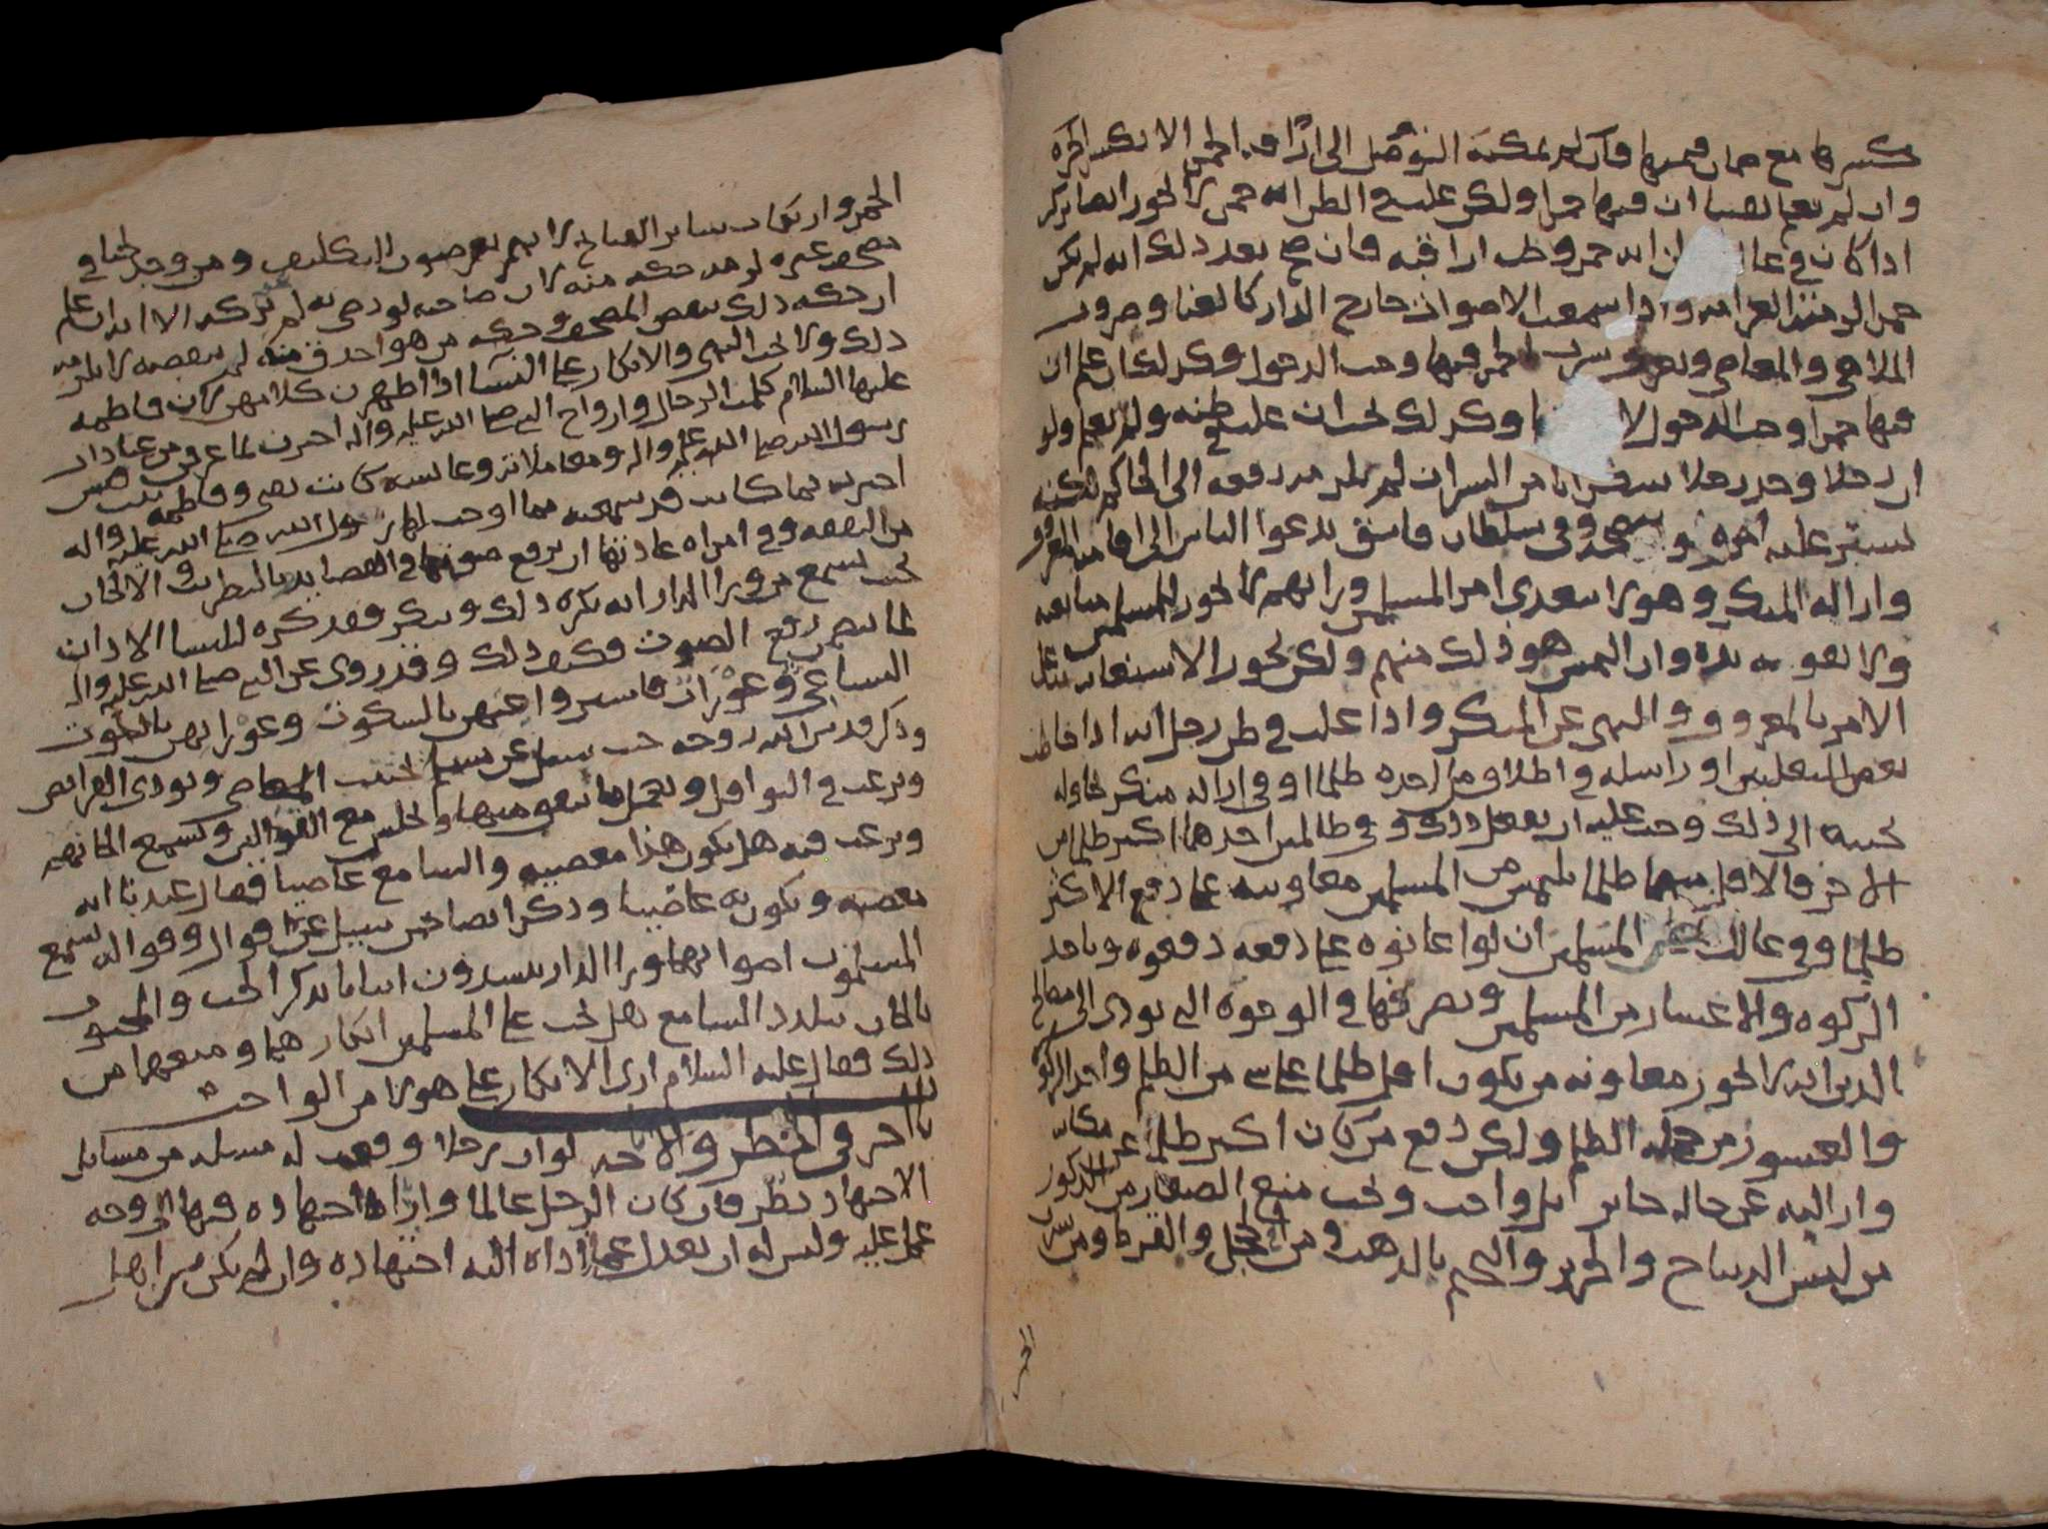 كسرها مع ضمان قيمتها فان لم يمكنه التوصل الى اراقة الخمر الا بكسر الجرة
وان لم يعلم يقينا ان فيها خمرا ولكن غلب في الظن انه خمر لا يجوز ايضا
اذا كان في غالب انه خمر وظن اراقته فان صح بعد ذلك انه لم يكن
خمرا لزمته الغرامة واذا سمعت الاصوات خارج الدار كالغنا وضروب
الملاهي والمعاصي وشرب الخمر فيها وجب الدخول وكذلك ان علم ان
فيها خمرا وجب الدخول وكذلك يجب ان غلب في ظنه ولم يعلم ولو
ان رجلا وجد رجلا من السراق لم يلزمه رفعه الى الحاكم
ليستر عليه امره وفي سلطان فاسق يدعوا الناس الى اقامة المعروف
وازالة المنكر وهو لا يتعدى امر المسلمين ورايهم لا يجوز للمسلمين متابعته
ولا تقوية يده وان التمس هو ذلك منهم ولكن يجوز الاستعانة بمثله
الامر بالمعروف والنهي عن المنكر واذا غلب في ظن رجل انه اذا خاطب
بعض المتغلبين او راسله في اطلاق من اخذه ظلما او في ازالة منكر
يجيبه الى ذلك وجب عليه ان يفعل ذلك وفي ظالمين احدهما اكبر ظلما من
الاخر فالاقل منهما ظلما يلتمس من المسلمين معاونته على دفع الاكثر
ظلما وفي غالب ظن المسلمين ان لو اعانوه على دفعه دفعوه وياخذ
الزكوة والاعشار من المسلمين ويصرفها في الوجوه التي تودي الى مصالح
الدين انه لا يجوز معاونة من يكون اقل ظلما على شي من الظلم واخذ الزكوة
والعشور من جملة الظلم ولكن دفع من كان اكبر ظلما عن مكانه
وازالته عن حاله جايز بل واجب ويجب منع الصغار من الذكور
من لبس الديباج والحرير والتختم بالذهب ومن الحجل والقرط ومن شرب
الخمر
الخمر وارتكاب ساير القبايح لانهم يعرضون للتكليف ومن وجد لحنا في
مصحف غيره لزمه حكه منه لان صاحبه لو رضي به لم يتركه الا ان علم
ان حكه ذلك ينقص المصحف وحكه من هو احذق منه لم ينقصه لا يلزمه
ذلك ولا يجب النهي والانكار على النسا اذا اظهرن كلامهن لان فاطمة
عليها السلام كلمت الرجال وازواج النبي صلى الله عليه واله اخبرن بما عرفن من عبادات
رسول الله صلى الله عليه واله ومعاملاته وعايشة كانت تفتي وفاطمة بنت قيس
اخبرت بما كانت قد سمعته مما اوجب لها رسول الله صلى الله عليه واله
من النفقة وفي امراة عادتها ان ترفع صوتها في القصايد بالتطريب والالحان
بحيث يسمع من ورا الدار انه يكره ذلك وينكر فقد كره للنسا الاذان
لما فيه من رفع الصوت فكيف ذلك وقد روي عن النبي صلى الله عليه واله
النسا عي وعورات فاستروا عيهن بالسكوت وعوراتهن بالبيوت
وذكر قدس الله روحه حين سيل عن مسلم يجتنب المعاصي ويودي الفرايض
ويرغب في النوافل ويجلس مع القوالين ويسمع الحانهم
ويرغب فيه هل يكون هذا معصية والسامع عاصيا فقال عندنا انه
معصية ويكون به عاصيا وذكر ايضا حين سيل عن قوال وقوالة يسمع
المسلمون اصواتهما ورا الدار ينشدون ابياتا بذكر الحب والمحبوب
بالحان يتلذذ السامع هل يجب على المسلمين انكارهما ومنعهما من
ذلك فقال عليه السلام ارى الانكار على هولا من الواجب
باب اخر في الحظر والاباحة لو ان رجلا وقعت له مسلة من مسايل
الاجتهاد نظر فان كان الرجل عالما واداه اجتهاده فيها الى وجه
عمل عليه وليس له ان يعدل عما اداه اليه اجتهاده وان لم يكن من اهل